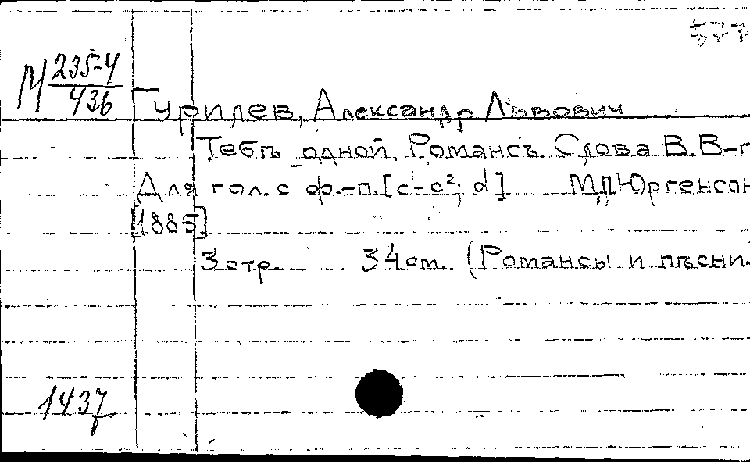 577
М 235-4/436
Гурилев, Александр Львович
Тебѣ одной. Романсъ. Слова В. В-г
Для гол. с ф.-п. [c-c², d] М, П. Юргенсон
[1885]
3 стр. 34 см. (Романсы и пѣсни.
1437